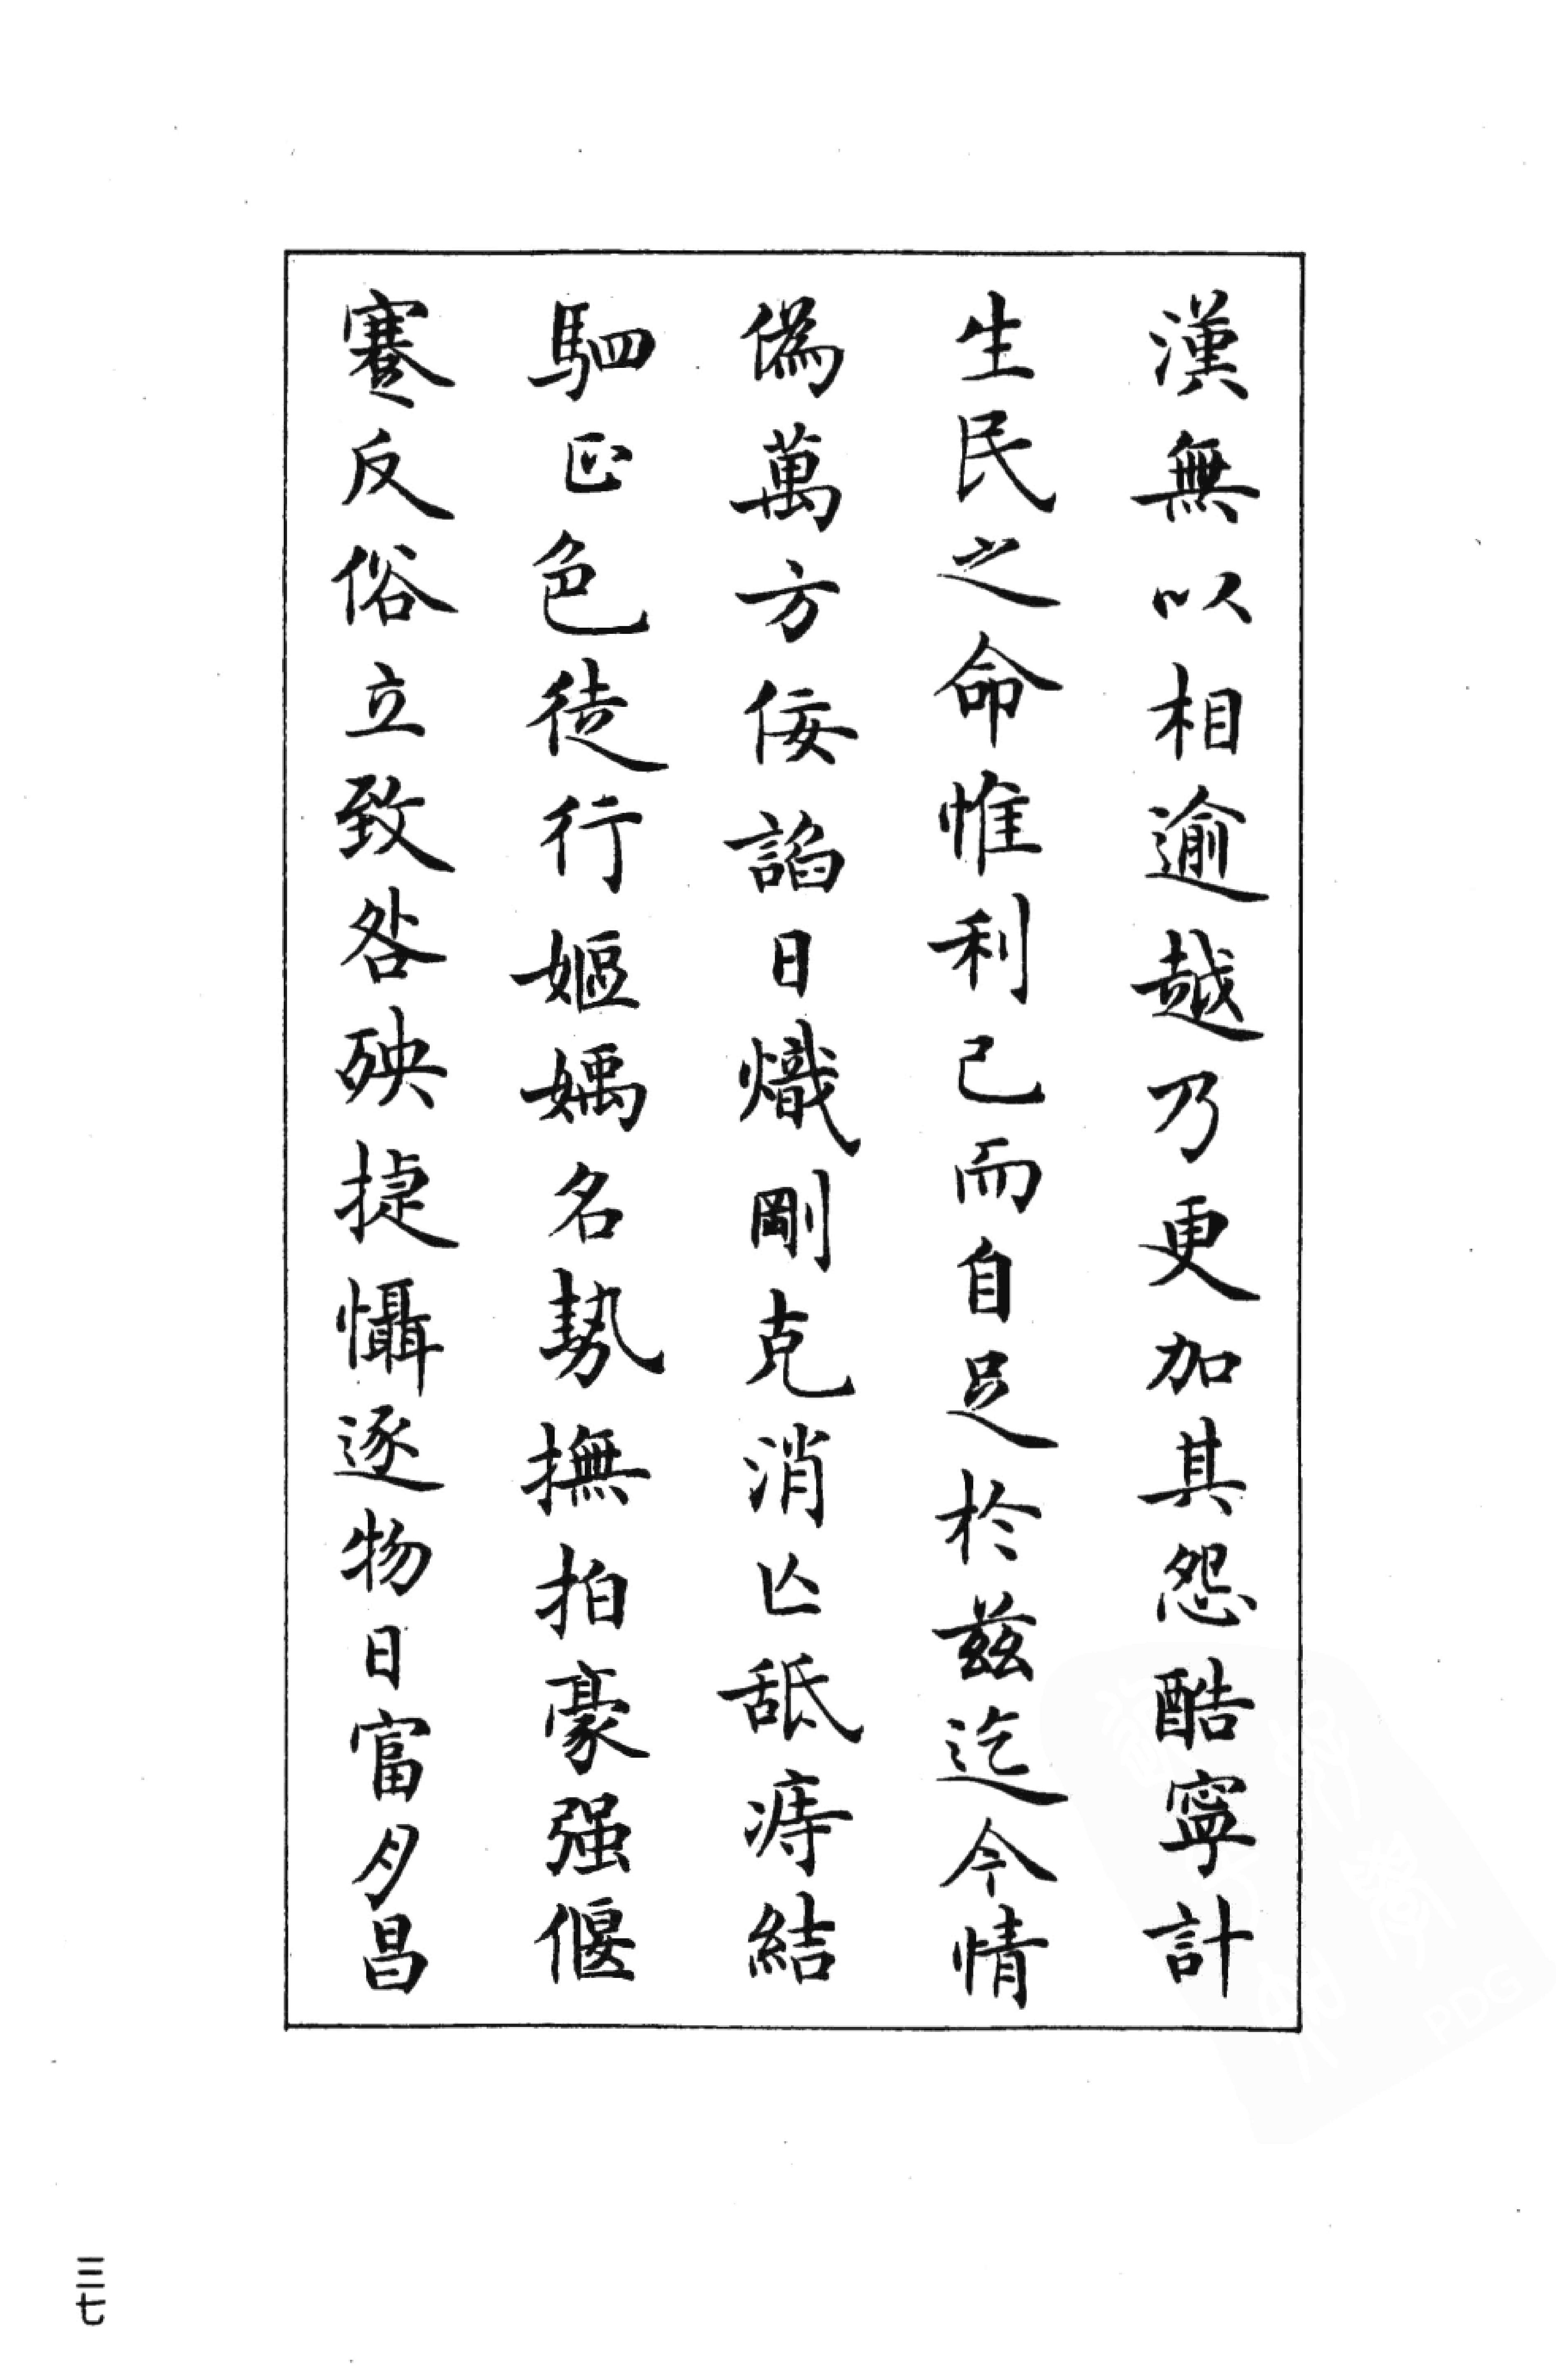 漢無以相逾越乃更加其怨酷寧計
生民之命惟利己而自足於兹迄今情
偽萬方佞諂日熾剛克消亡舐痔結
駟正色徒行嫗㜏名勢撫拍豪强偃
蹇反俗立致咎殃捷懾逐物日富月昌
三七
PDG